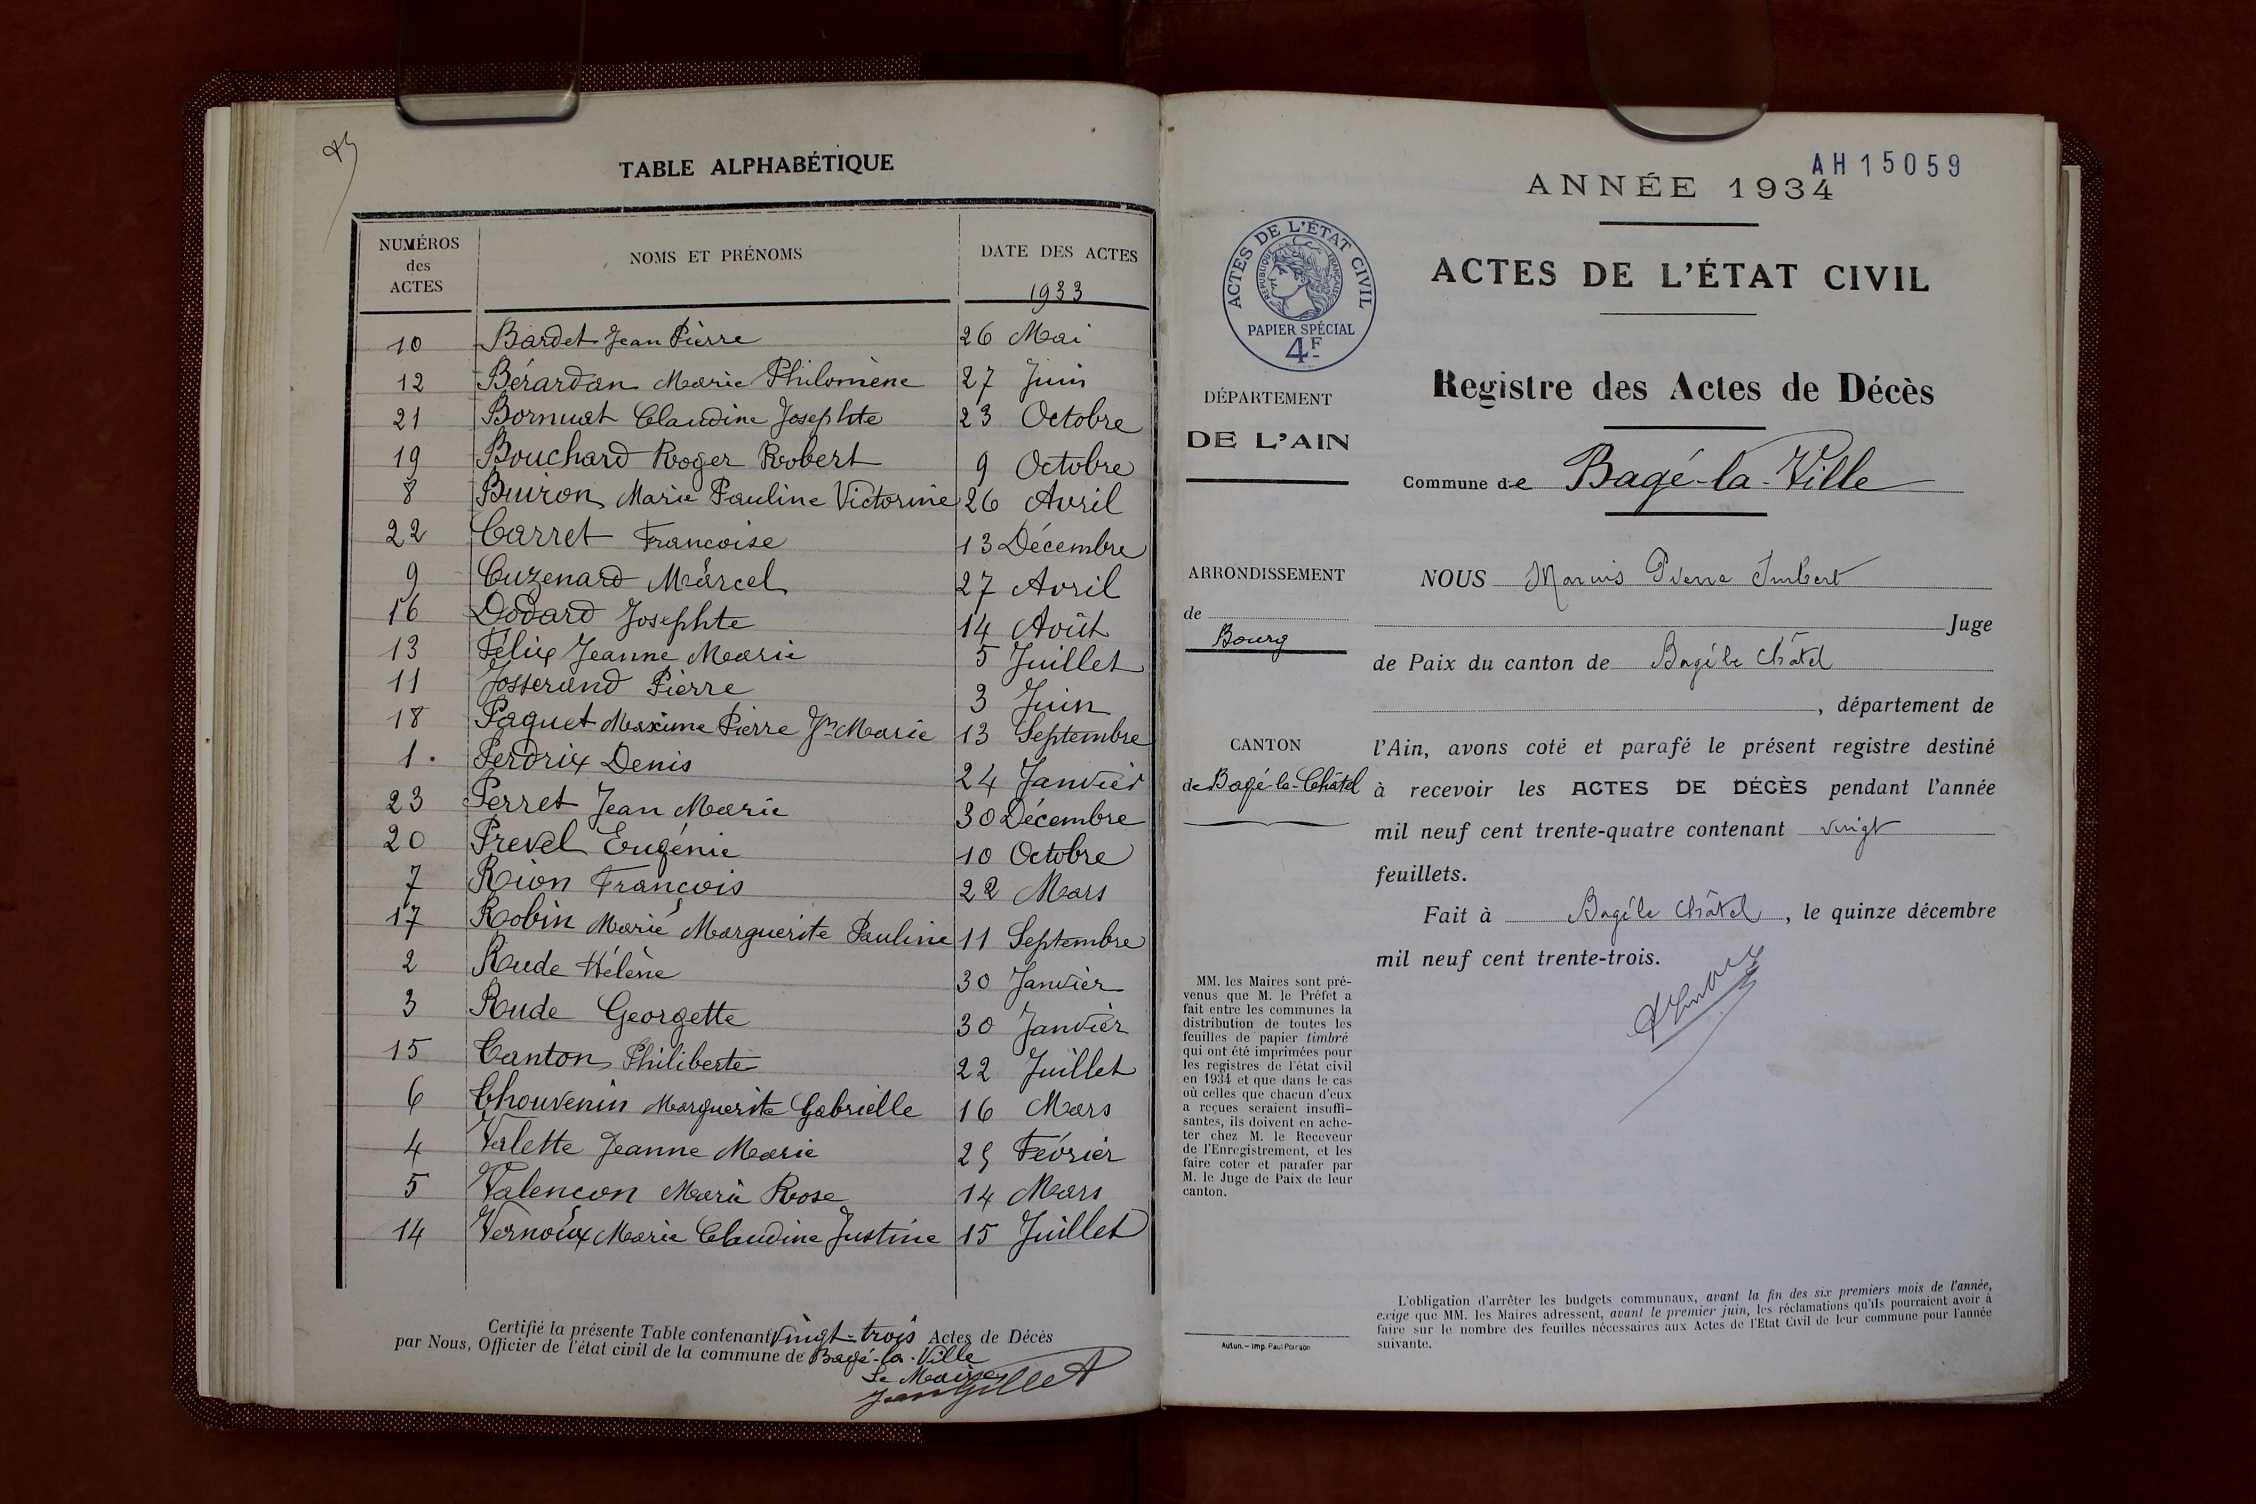 TABLE ALPHABÉTIQUE
NUMÉROS des ACTES NOMS ET PRÉNOMS DATE DES ACTES
1933
10 Bardet Jean Pierre 26 Mai
12 Bérardan Marie Philomène 27 Juin
21 Bornuat Claudine Josephte 23 Octobre
19 Bouchard Roger Robert 9 Octobre
8 Buiron Marie Pauline Victorine 26 Avril
22 Carret Francoise 13 Décembre
9 Cuzenard Marcel 27 Avril
16 Dodard Josephte 14 Août
13 Félix Jeanne Marie 5 Juillet
11 Josserand Pierre 3 Juin
18 Paquet Maxime Pierre Jn Marie 13 Septembre
1. Perdrix Denis 24 Janvier
23 Perret Jean Marie 30 Décembre
20 Prevel Eugénie 10 Octobre
7 Rion François 22 Mars
17 Robin Marie Marguerite Pauline 11 Septembre
2 Rude Hélène 30 Janvier
3 Rude Georgette 30 Janvier
15 Canton Philiberte 22 Juillet
6 Chouvenin Marguerite Gabrielle 16 Mars
4 Valette Jeanne Marie 25 Février
5 Valençon Marie Rose 14 Mars
14 Vernoux Marie Claudine Justine 15 Juillet
Certifié la présente Table contenant vingt-trois Actes de Décès
par Nous, Officier de l'état civil de la commune de Bagé-la-Ville
Le Maire
Jean Gillet
AH15059
ANNÉE 1934
ACTES DE L'ÉTAT CIVIL
RÉPUBLIQUE FRANÇAISE
PAPIER SPÉCIAL
4F
ACTES DE L'ÉTAT CIVIL
DÉPARTEMENT
DE L'AIN
Registre des Actes de Décès
Commune de Bagé-la-Ville
ARRONDISSEMENT
de
Bourg
CANTON
de Bagé-le-Châtel
NOUS Marius Pierre Imbert
Juge
de Paix du canton de Bagé le Châtel
, département de
l'Ain, avons coté et parafé le présent registre destiné
à recevoir les ACTES DE DÉCÈS pendant l'année
mil neuf cent trente-quatre contenant vingt
feuillets.
Fait à Bagé le Châtel, le quinze décembre
mil neuf cent trente-trois.
MM. les Maires sont pré-
venus que M. le Préfet a
fait entre les communes la
distribution de toutes les
feuilles de papier timbré
qui ont été imprimées pour
les registres de l'état civil
en 1934 et que dans le cas
où celles que chacun d'eux
a reçues seraient insuffi-
santes, ils doivent en ache-
ter chez M. le Receveur
de l'Enregistrement, et les
faire coter et parafer par
M. le Juge de Paix de leur
canton.
Autun. – Imp. Paul Poirson
L'obligation d'arrêter les budgets communaux, avant la fin des six premiers mois de l'année,
exige que MM. les Maires adressent, avant le premier juin, les réclamations qu'ils pourraient avoir à
faire sur le nombre des feuilles nécessaires aux Actes de l'Etat Civil de leur commune pour l'année
suivante.